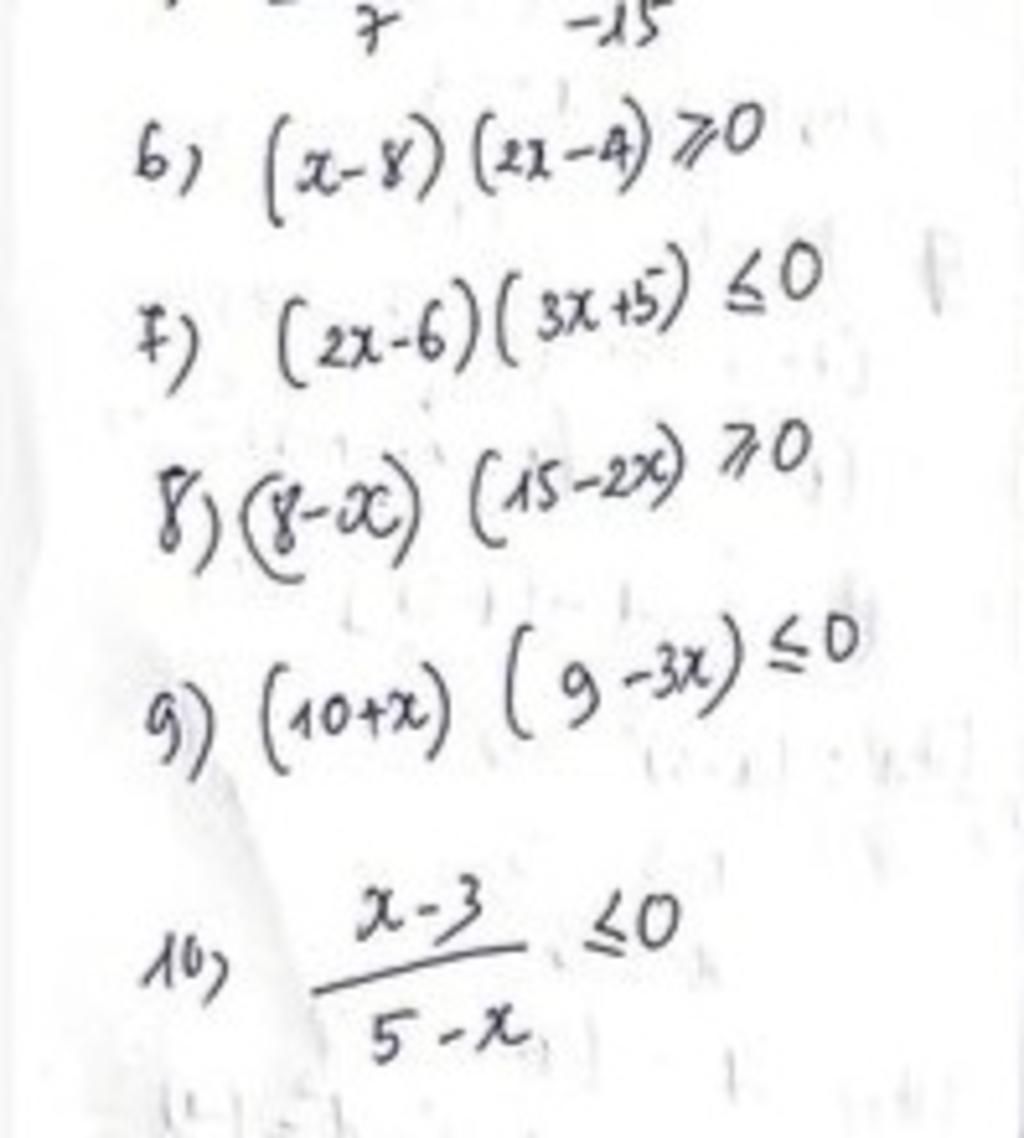 7 -15
6) (x-8) (2x-4) ⩾0
7) (2x-6) (3x+5) ≤0
8) (8-x) (15-2x) ⩾0
9) (10+x) (9-3x) ≤0
10) x-3 ≤0
5-x